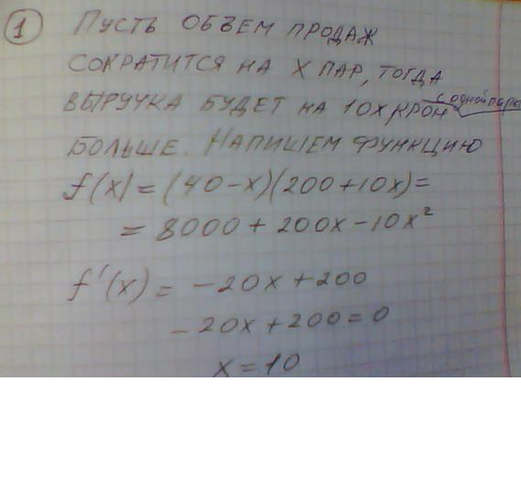 1 ПУСТЬ ОБЪЕМ ПРОДАЖ
СОКРАТИТСЯ НА X ПАР, ТОГДА
ВЫРУЧКА БУДЕТ НА 10X КРОН с одной пары
БОЛЬШЕ. НАПИШЕМ ФУНКЦИЮ
f(x) = (40-x)(200+10x)=
= 8000 + 200x - 10x²
f'(x) = -20x + 200
-20x + 200 = 0
x = 10